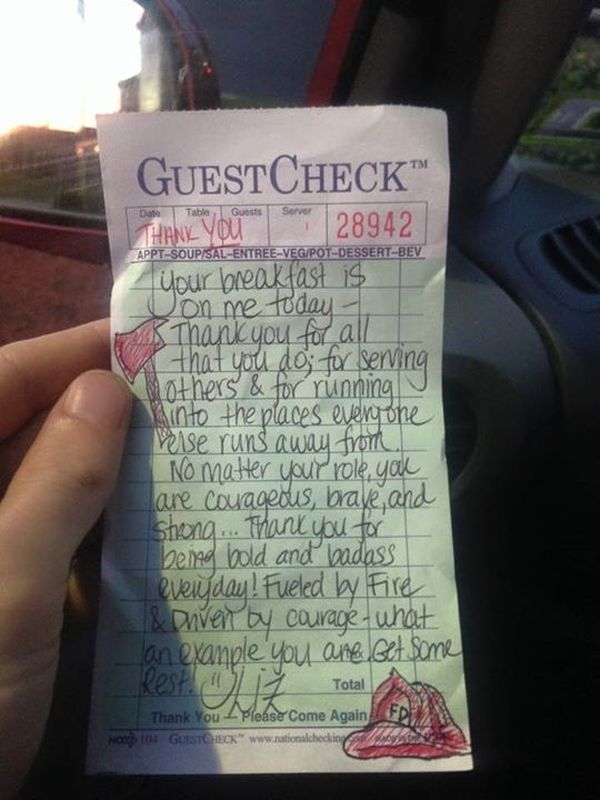 GUESTCHECK™
Date Table Guests Server
THANK YOU 28942
APPT-SOUP/SAL-ENTREE-VEG/POT-DESSERT-BEV
Your breakfast is
on me today -
Thank you for all
that you do; for serving
others & for running
into the places everyone
else runs away from.
No matter your role, you
are courageous, brave, and
strong... Thank you for
being bold and badass
everyday! Fueled by Fire
& Driven by courage - what
an example you are. Get Some
Rest! Liz
Total
FD
Thank You - Please Come Again
104 GUESTCHECK™ www.nationalchecking